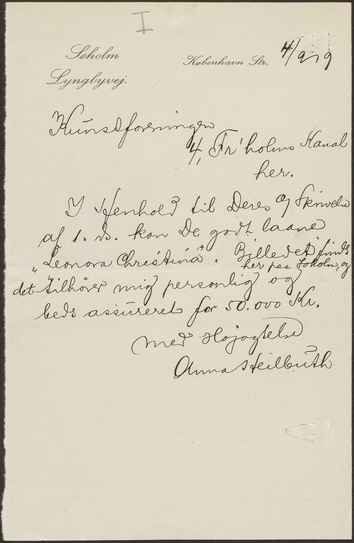 I
Søholm
Lyngbyvej.
København Str. 4/9 19
Kunstforeningen
4, Fr'holms Kanal
her.
I Henhold til Deres Skrivelse
af 1. ds. kan De godt laane
"Leonora Christina". Billedet findes
her paa Søholm, og
det tilhører mig personlig og
beds assureret for 50.000 Kr.
Med Højagtelse
Anna Heilbuth